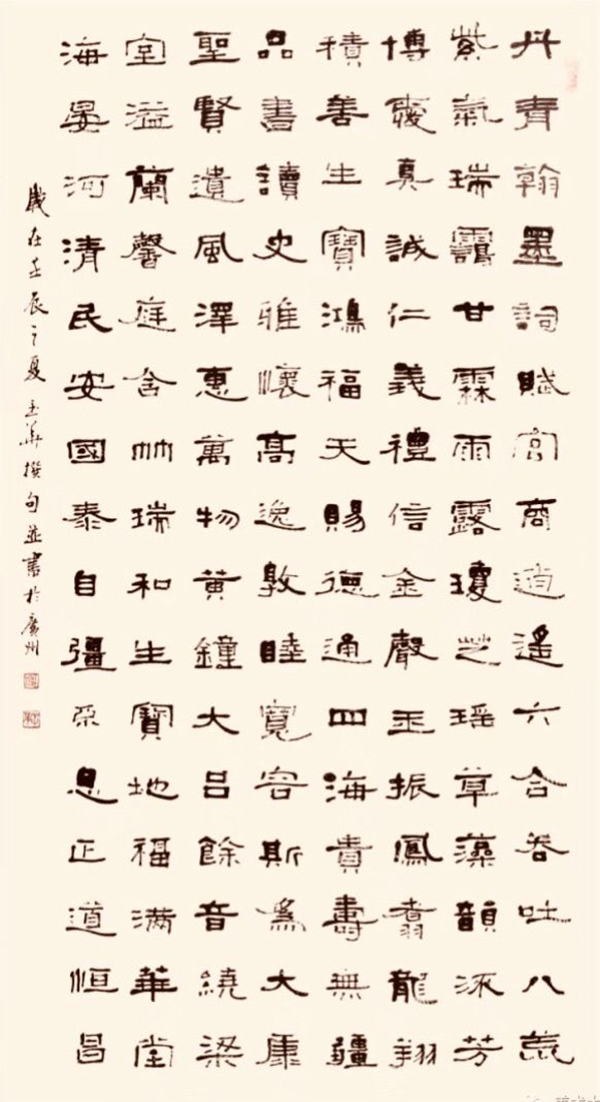 丹青翰墨詞賦宮商逍遙六合吞吐八荒
紫氣瑞靄甘霖雨露瓊芝瑶草藻韻流芳
博愛真誠仁義禮信金聲玉振鳳翥龍翔
積善生寶鴻福天賜德通四海貴壽無疆
品書讀史雅懷髙逸敦睦寬容斯為大康
聖賢遺風澤惠萬物黃鐘大呂餘音繞梁
室溢蘭馨庭舍瑞和生寶地福滿華堂
海晏河清民安國泰自彊不息正道恒昌
歲在壬辰之夏玉華撰句並書於廣州